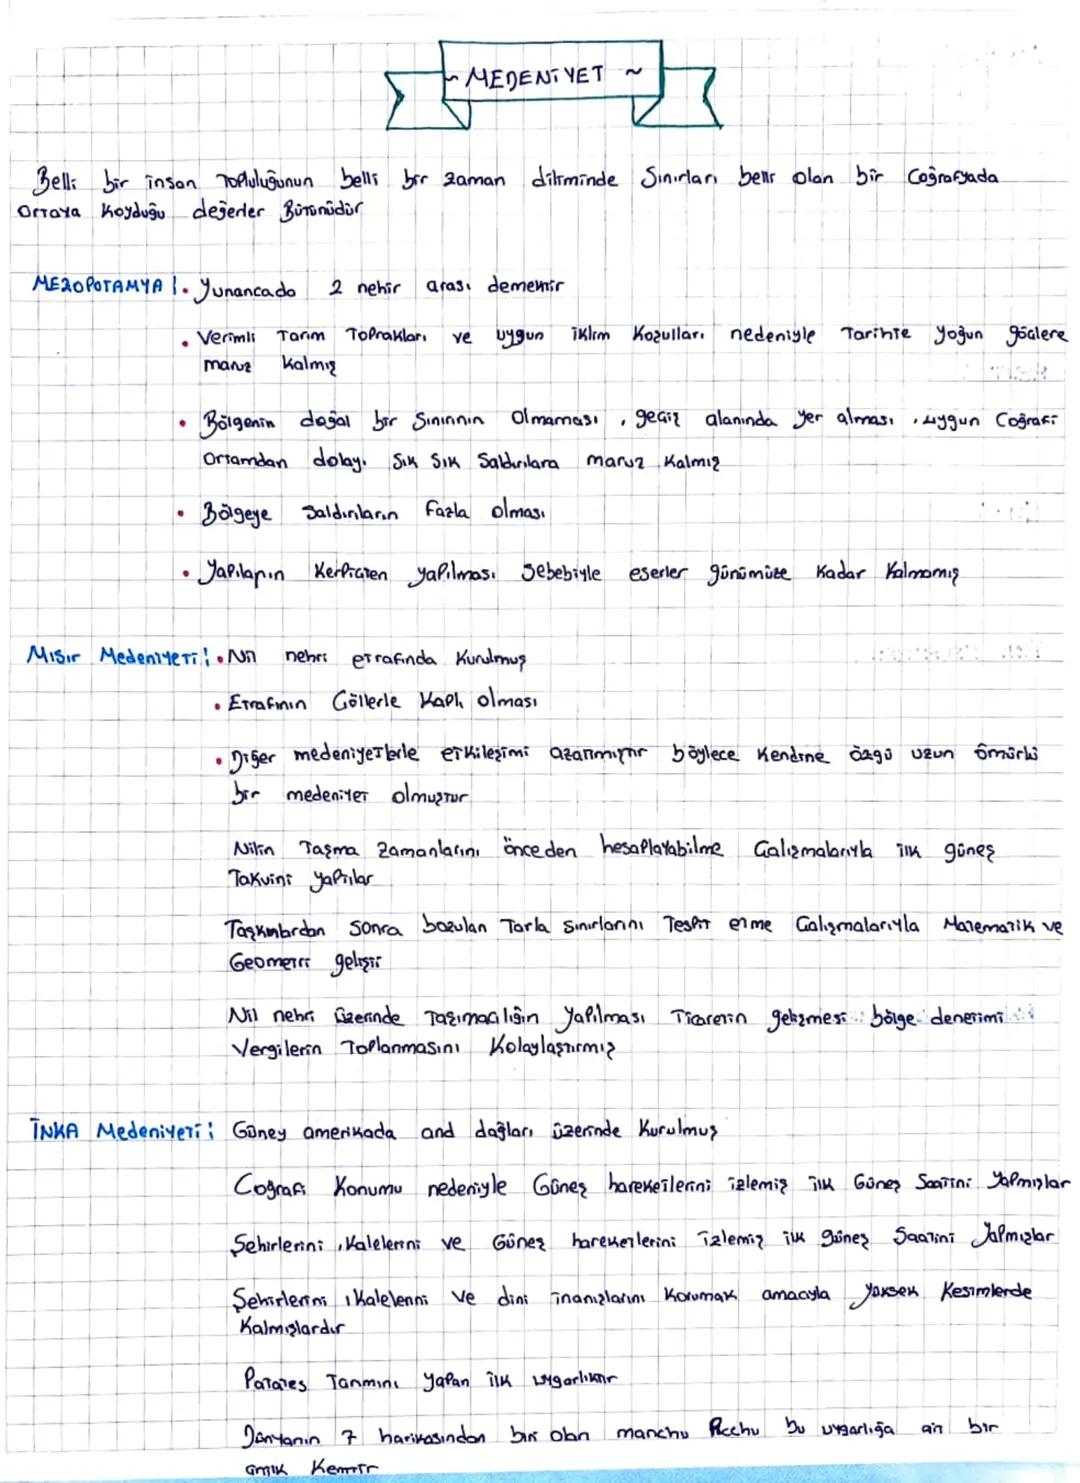 ~ MEDENİYET ~
Belli bir insan Topluluğunun belli bir zaman diliminde Sınırları belli olan bir Coğrafyada
Ortaya Koyduğu değerler Bütünüdür
MEZOPOTAMYA : • Yunancada 2 nehir arası demektir
• Verimli Tarım Toprakları ve uygun iklim Koşulları nedeniyle Tarihte yoğun göçlere
maruz kalmış
• Bölgenin doğal bir Sınırının Olmaması , geçiş alanında yer alması , uygun Coğrafi
Ortamdan dolayı Sık Sık Saldırılara maruz Kalmış
• Bölgeye Saldırıların Fazla olması
• Yapıların Kerpiçten yapılması Sebebiyle eserler günümüze Kadar Kalmamış
Mısır Medeniyeti : • Nil nehri etrafında Kurulmuş
• Etrafının Göllerle Kaplı olması
• Diğer medeniyetlerle etkileşimi azaltmıştır böylece Kendine özgü uzun ömürlü
bir medeniyet olmuştur
Nilin Taşma Zamanlarını önceden hesaplayabilme Çalışmalarıyla ilk güneş
Takvimi yaptılar
Taşkınlardan Sonra bozulan Tarla sınırlarını Tespit etme Çalışmalarıyla Matematik ve
Geometri gelişti
Nil nehri üzerinde Taşımacılığın yapılması Ticaretin gelişmesi bölge denetimi
Vergilerin Toplanmasını Kolaylaştırmış
İNKA Medeniyeti : Güney amerikada and dağları üzerinde Kurulmuş
Coğrafi Konumu nedeniyle Güneş hareketlerini izlemiş ilk Güneş Saatini Yapmışlar
Şehirlerini , Kalelerini ve Güneş hareketlerini izlemiş ilk güneş Saatini Yapmışlar
Şehirlerini , Kalelerini ve dini inanışlarını Korumak amacıyla yüksek Kesimlerde
Kalmışlardır
Patates Tarımını yapan ilk uygarlıktır
Dünyanın 7 harikasından biri olan manchu Picchu bu uygarlığa ait bir
antik Kenttir